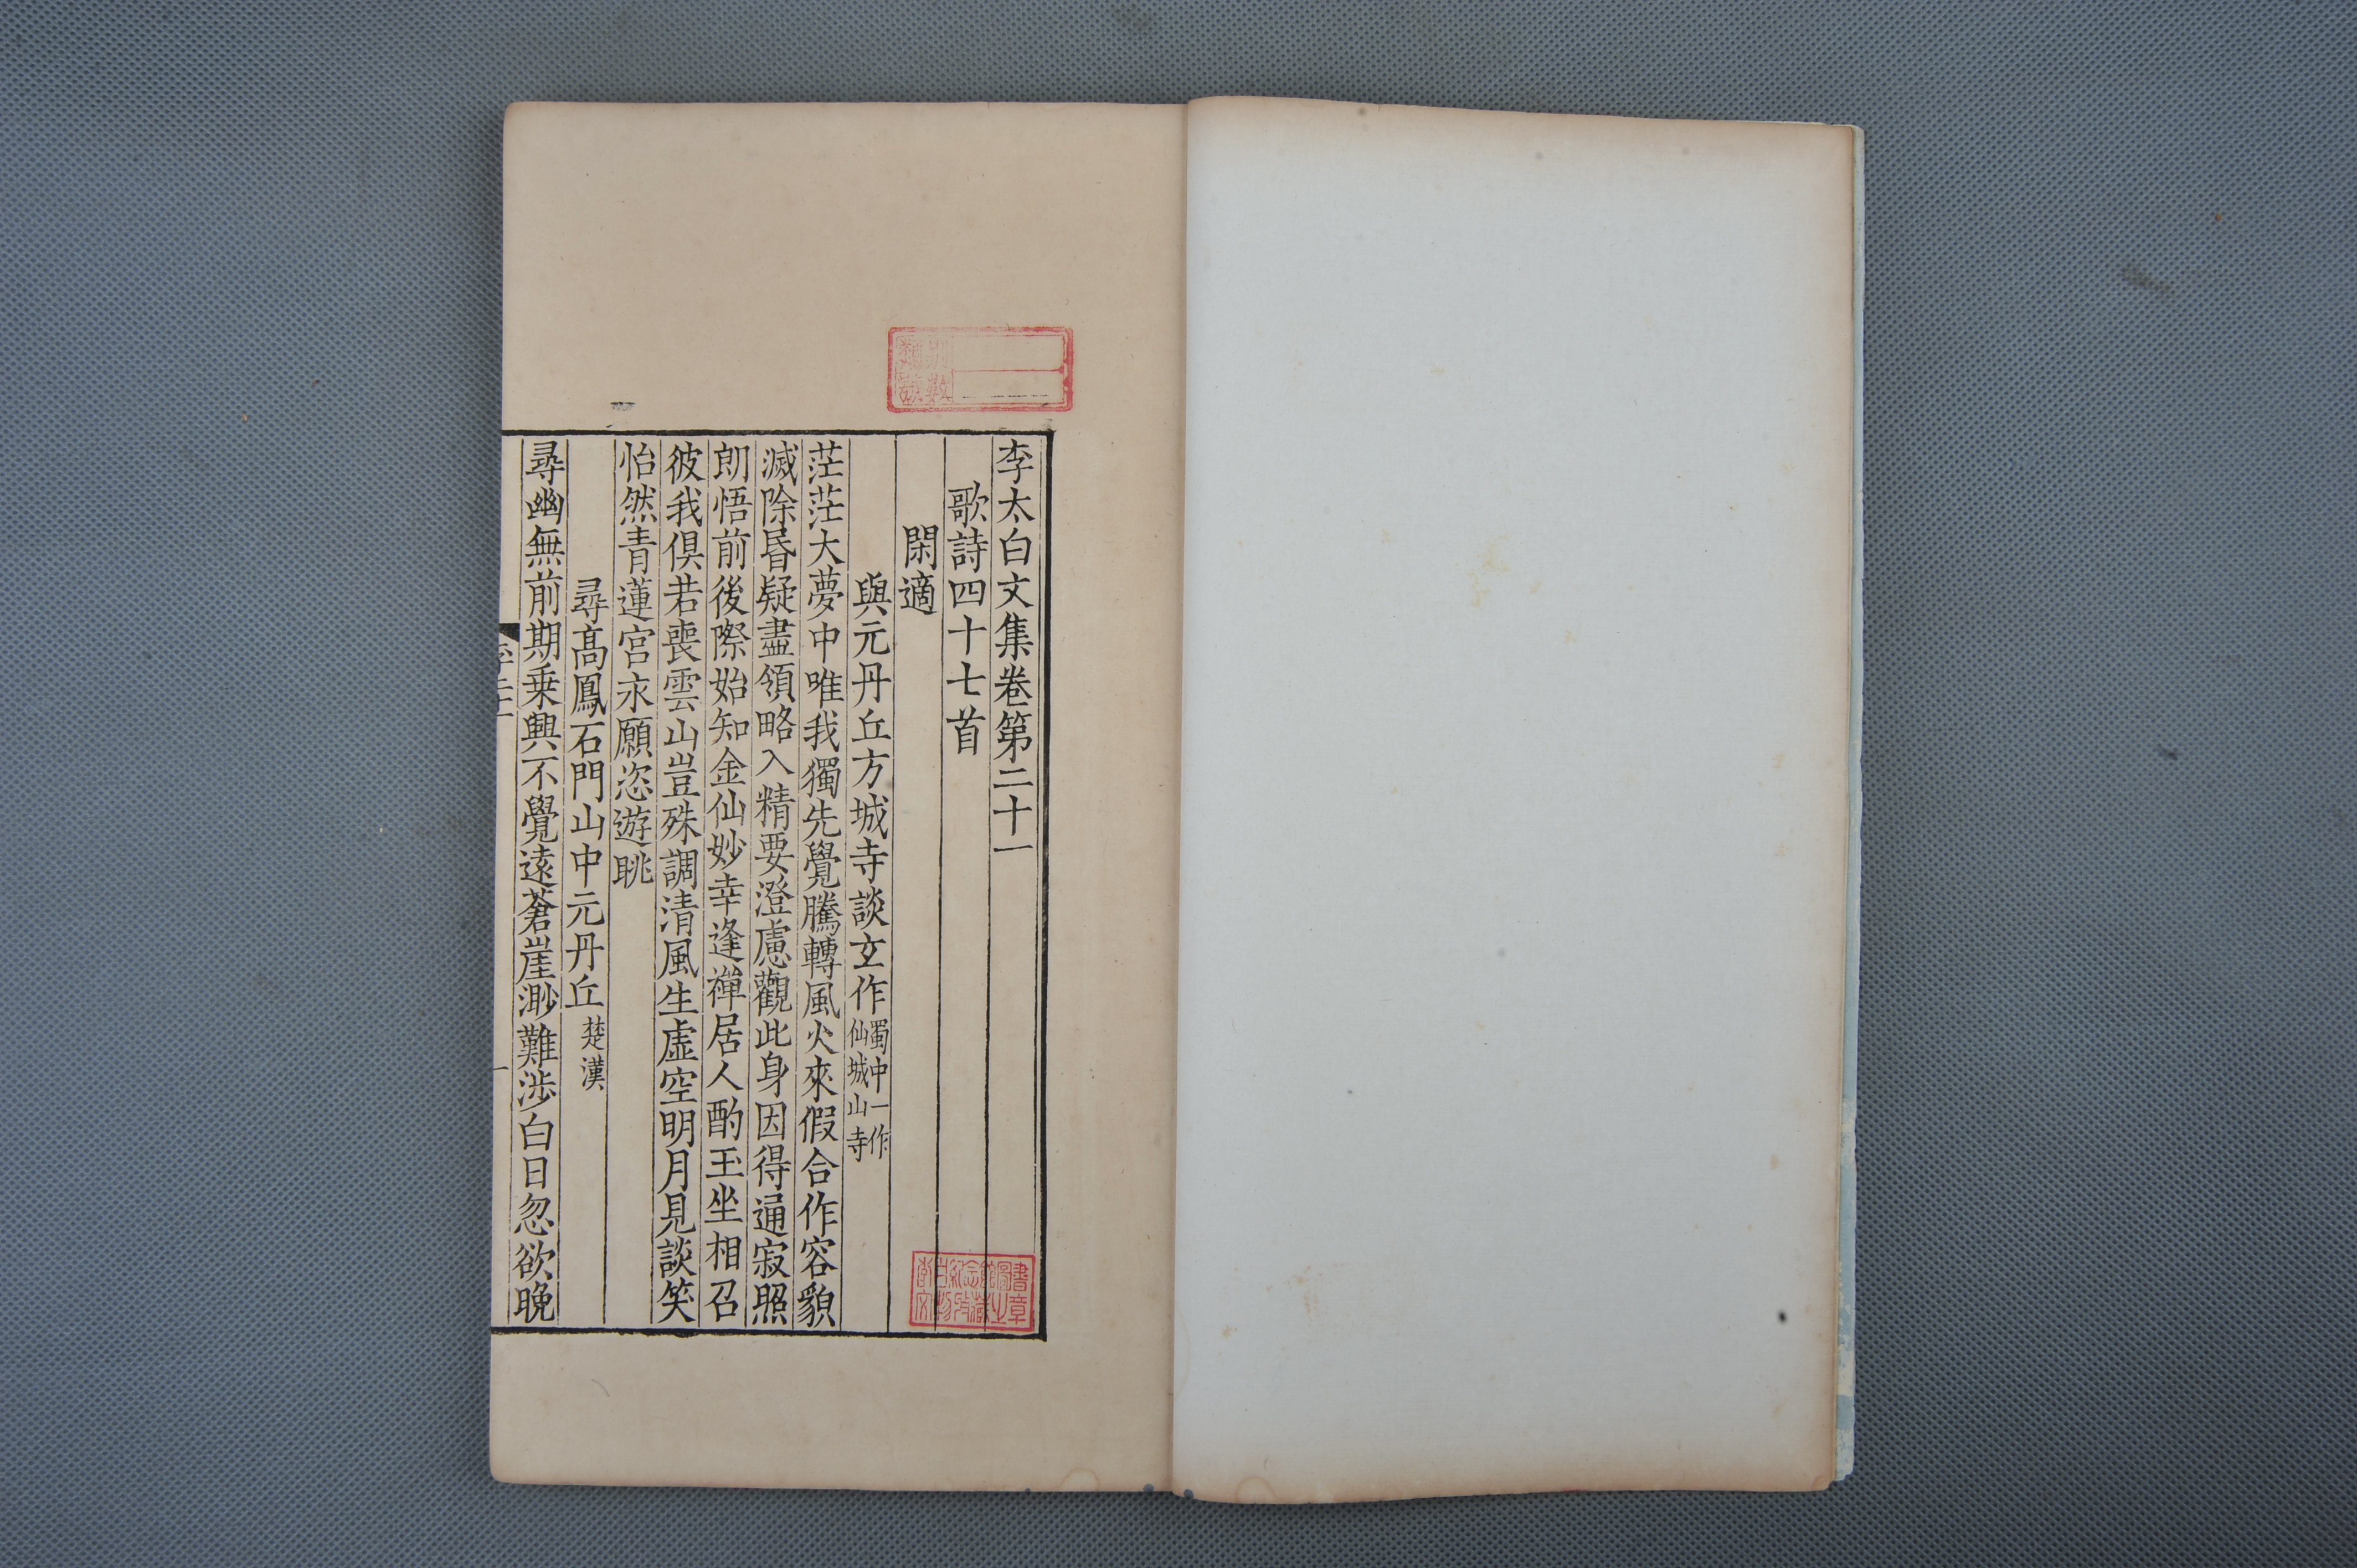 李太白文集卷第二十一
歌詩四十七首
閑適
與元丹丘方城寺談玄作蜀中一作仙城山寺
茫茫大夢中唯我獨先覺騰轉風火來假合作容貌
滅除昬疑盡領略入精要澄慮觀此身因得通寂照
朗悟前後際始知金仙妙幸逢禪居人酌玉坐相召
彼我俱若喪雲山豈殊調清風生虛空明月見談笑
怡然青蓮宮永願恣遊眺
尋高鳳石門山中元丹丘楚漢
尋幽無前期乗興不覺遠蒼崖渺難涉白日忽欲晚
一